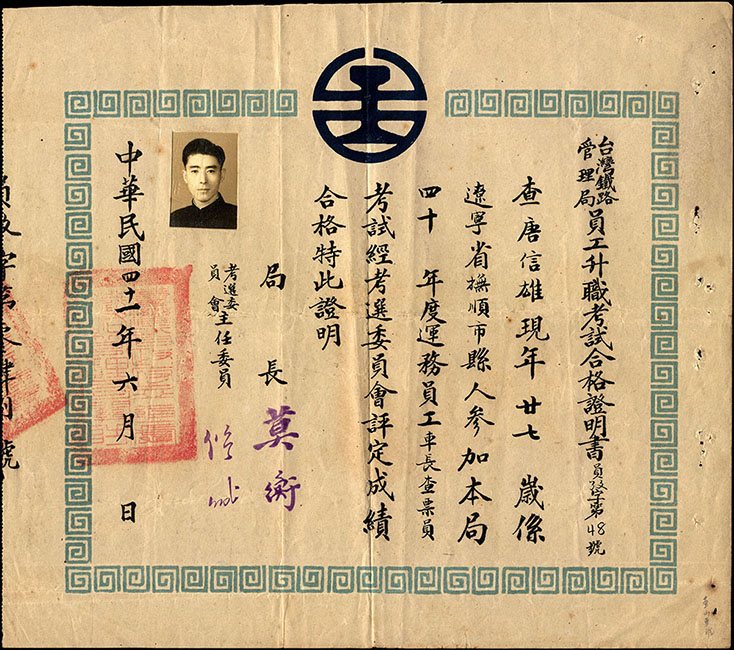 台灣鐵路管理局員工升職考試合格證明書 員致字第48號
查唐信雄現年廿七歲係
遼寧省撫順市縣人參加本局
四十年度運務員工車長查票員
考試經考選委員會評定成績
合格特此證明
局長 莫衡
考選委員會主任委員
中華民國四十一年六月 日